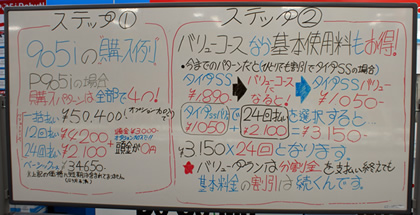 ステップ①
905iの「購入例」
P905iの場合
「購入パターン」は全部で4つ!
一括払い ¥50,400
12回払 ¥4,200
24回払 ¥2,100
頭金が0円
ベーシックコース ¥34,650
ステップ②
バリューコースなら基本使用料もお得!
・今までのパターンだと(ひとりでも割引でタイプSSの場合)
タイプSS ¥1,890
バリューコースになると!
タイプSSバリュー ¥1,050
タイプSSバリュー ¥1,050
+
24回払 ¥2,100
を選択すると…
=¥3,150
¥3,150×24回となります。
★バリュープランは分割金を支払い終えても
基本料金の割引は続くんです。